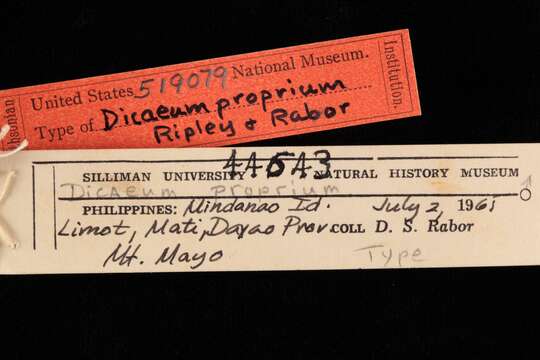 United States 519079 National Museum.
Type of Dicaeum proprium
Ripley & Rabor
Institution.
44543
SILLIMAN UNIVERSITY NATURAL HISTORY MUSEUM
Dicaeum proprium ♂
PHILIPPINES: Mindanao Id. July 2, 1965
Limot, Mati, Davao Prov. COLL D. S. Rabor
Mt. Mayo Type